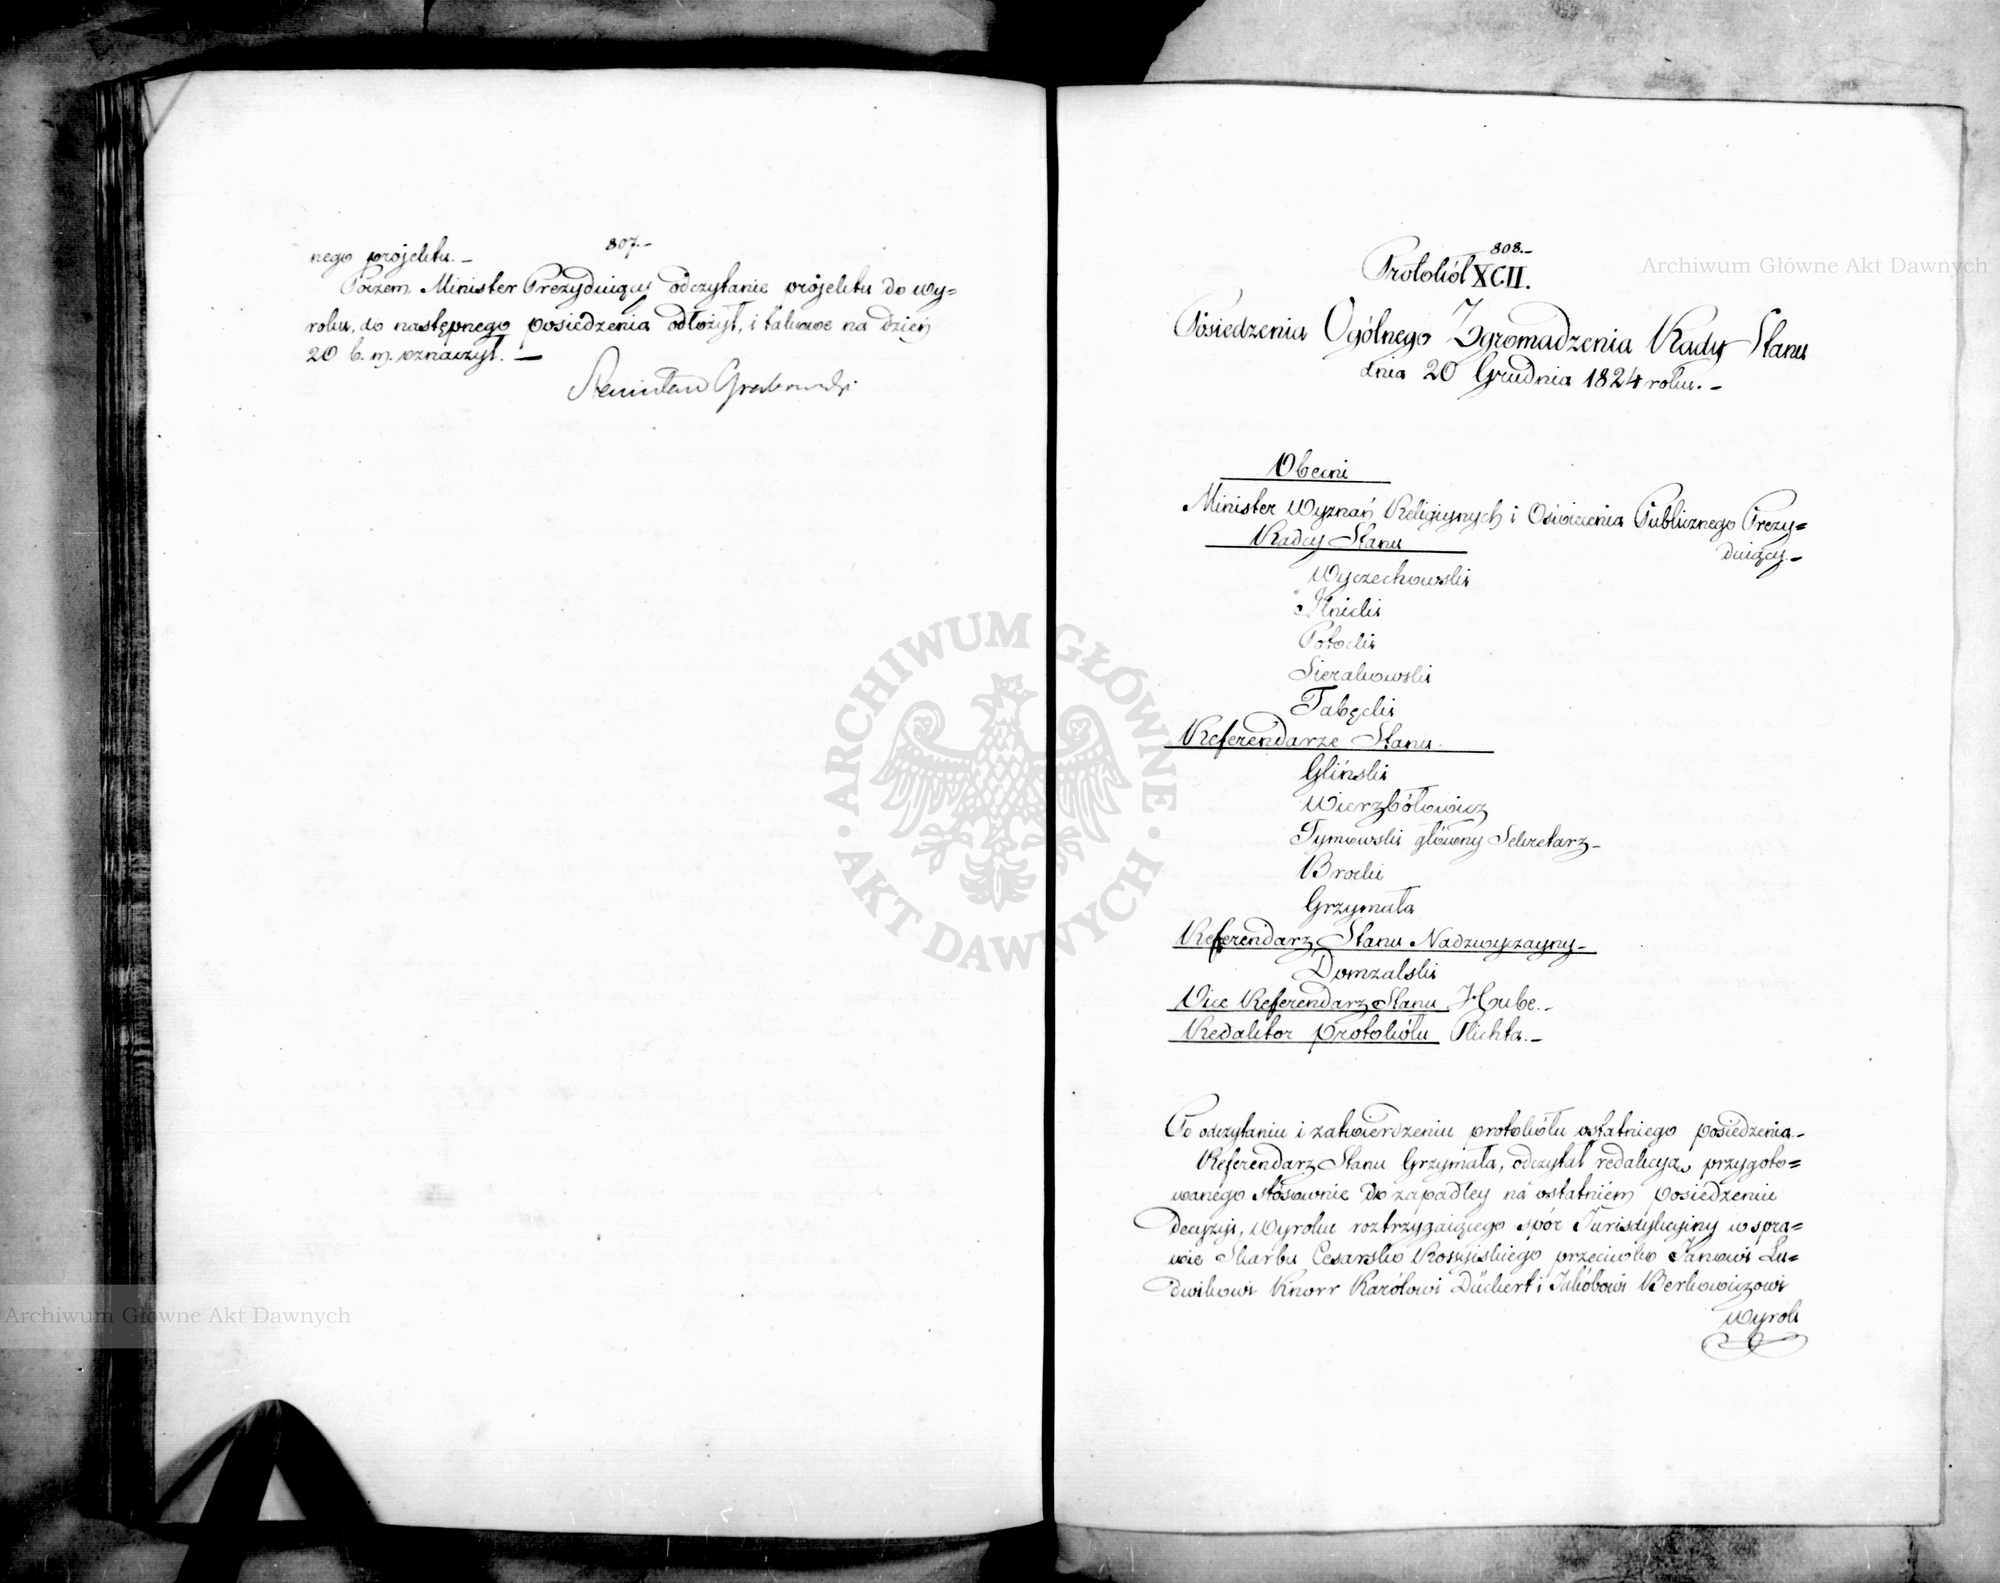 807.-
nego projektu.-
Poczem Minister Prezydujący odczytanie projektu do wy=
roku, do następnego posiedzenia odłożył, i takowe na dzień
20 b. m. oznaczył.-
Stanisław Grabowski
808.-
Protokół XCII.
Posiedzenia Ogólnego Zgromadzenia Rady Stanu
dnia 20 Grudnia 1824 roku.-
Obecni
Minister Wyznań Religijnych i Oświecenia Publicznego Prezy=
duiący.-
Radcy Stanu
Wyczechowski
Ilnicki
Potocki
Sierakowski
Tabęcki
Referendarze Stanu
Gliński
Wierzbółowicz
Tymowski główny Sekretarz-
Brocki
Grzymała
Referendarz Stanu Nadzwyczayny-
Domzalski
Vice Referendarz Stanu Hube.-
Redaktor protokółu Plichta.-
Po odczytaniu i zatwierdzeniu protokółu ostatniego posiedzenia.-
Referendarz Stanu Grzymała, odczytał redakcyą przygoto=
wanego stósownie do zapadłey na ostatniem posiedzeniu
Decyzyi, Wyroku roztrzygaiącego spór Jurisdykcyiny w spra=
wie Skarbu Cesarsko Rossyiskiego przeciwko Janowi Lu=
dwikowi Knorr Karólowi Dückert i Jakóbowi Berkowiczowi
Wyrok
Archiwum Główne Akt Dawnych
ARCHIWUM GŁÓWNE AKT DAWNYCH
Archiwum Główne Akt Dawnych